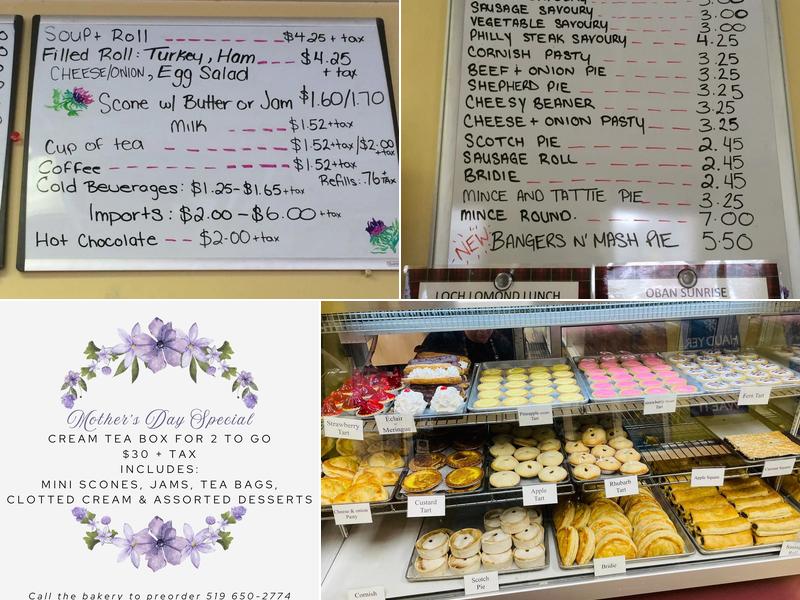 Soup + Roll $4.25 + tax
Filled Roll: Turkey, Ham $4.25
CHEESE/ONION, Egg Salad + tax
Scone w/ Butter or Jam $1.60/1.70
Milk $1.52+tax
Cup of tea $1.52+tax/$2.00 +tax
Coffee $1.52+tax
Refills: .76+TAX
Cold Beverages: $1.25-$1.65+tax
Imports: $2.00-$6.00+tax
Hot Chocolate $2.00+tax
SAUSAGE SAVOURY 3.00
VEGETABLE SAVOURY 3.00
PHILLY STEAK SAVOURY 4.25
CORNISH PASTY 3.25
BEEF + ONION PIE 3.25
SHEPHERD PIE 3.25
CHEESY BEANER 3.25
CHEESE + ONION PASTY 3.25
SCOTCH PIE 2.45
SAUSAGE ROLL 2.45
BRIDIE 2.45
MINCE AND TATTIE PIE 3.25
MINCE ROUND 7.00
NEW BANGERS N' MASH PIE 5.50
LOCH LOMOND LUNCH
OBAN SUNRISE
Mother's Day Special
CREAM TEA BOX FOR 2 TO GO
$30 + TAX
INCLUDES:
MINI SCONES, JAMS, TEA BAGS,
CLOTTED CREAM & ASSORTED DESSERTS
Call the bakery to preorder 519 650-2774
Strawberry
Tart
Eclair
Meringue
Pineapple
Tart
Tart
Fern Tart
Cheese & onion
Pasty
Custard
Tart
Apple
Tart
Rhubarb
Tart
Apple Square
Cornish
Scotch
Pie
Bridie